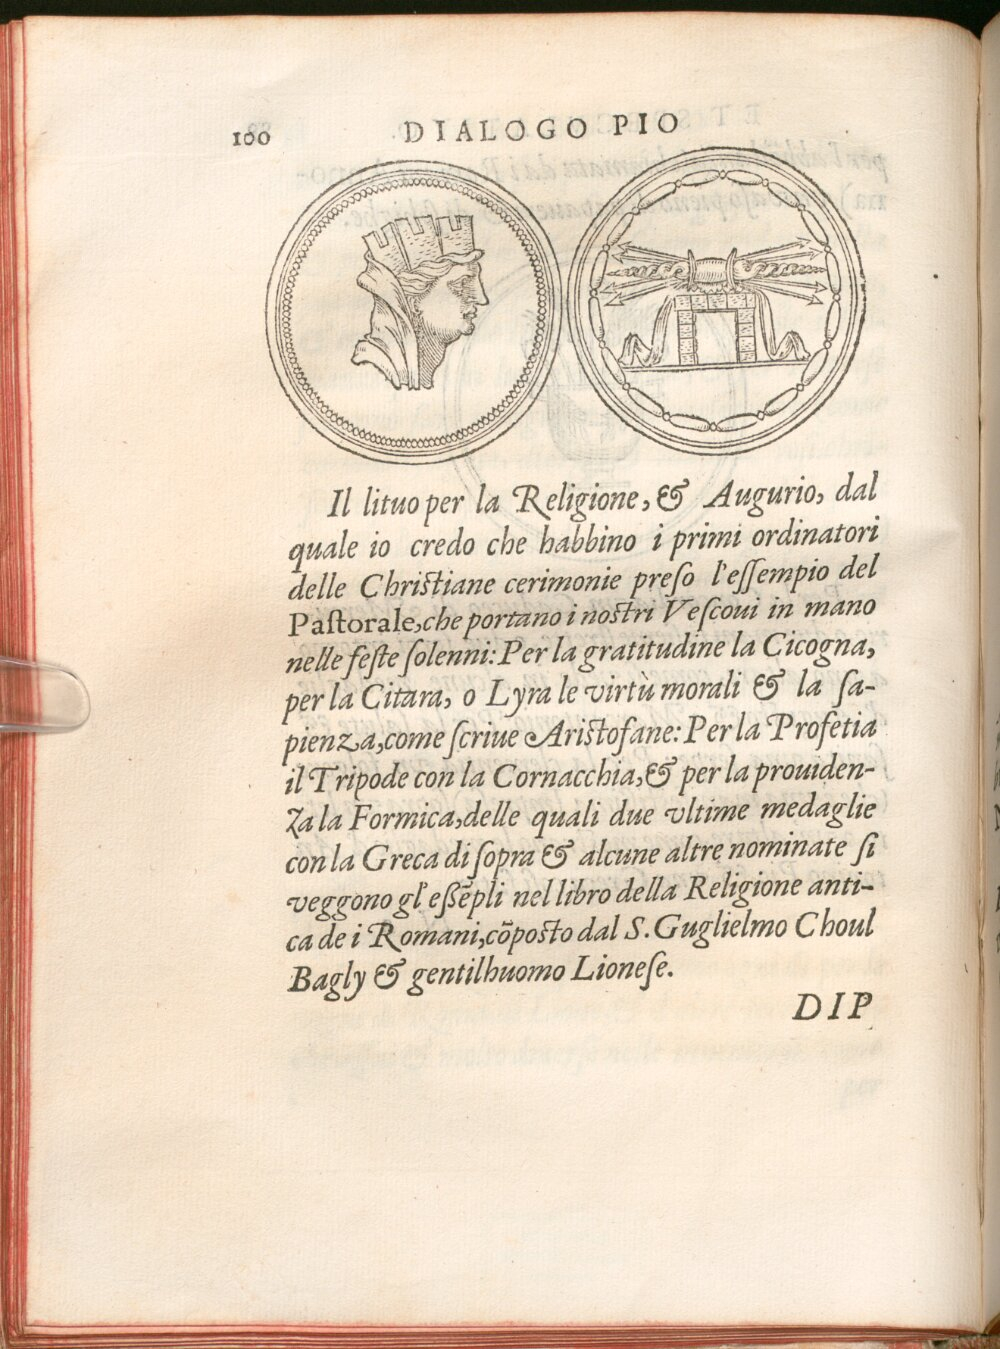 100 DIALOGO PIO
Il lituo per la Religione, & Augurio, dal
quale io credo che habbino i primi ordinatori
delle Christiane cerimonie preso l'essempio del
Pastorale, che portano i nostri Vescoui in mano
nelle feste solenni: Per la gratitudine la Cicogna,
per la Citara, o Lyra le virtù morali & la sa-
pienza, come scriue Aristofane: Per la Profetia
il Tripode con la Cornacchia, & per la prouiden-
za la Formica, delle quali due vltime medaglie
con la Greca di sopra & alcune altre nominate si
veggono gl'essẽpli nel libro della Religione anti-
ca de i Romani, cõposto dal S. Guglielmo Choul
Bagly & gentilhuomo Lionese.
DIP